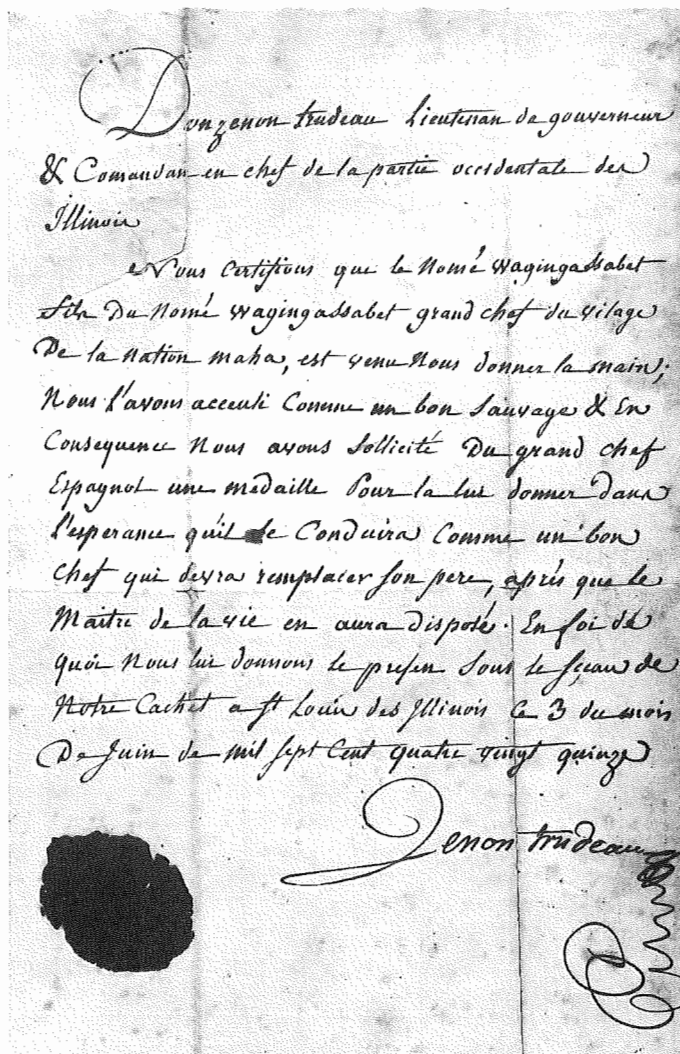 Don zenon trudeau Lieutenan de gouverneur
& Comandan en chef de la partie occidentale des
Illinois
Nous Certifions que le Nomé wagingassabet
fils Du Nomé wagingassabet grand chef du vilage
De la nation maha, est venu Nous donner la main;
Nous l'avons acceuli Comme un bon Sauvage & En
Consequence Nous avons sollicité Du grand chef
Espagnol une medaille Pour la lui donner dans
l'esperance qu'il se Conduira Comme un bon
chef qui devra remplacer son pere, aprés que le
Maitre de la vie en aura disposé. En foi de
quoi Nous lui donnons le presen sous le sçeau de
Notre Cachet a St Louis des Illinois Ce 3 du mois
De Juin de mil sept Cent quatre vingt quinze
Zenon trudeau